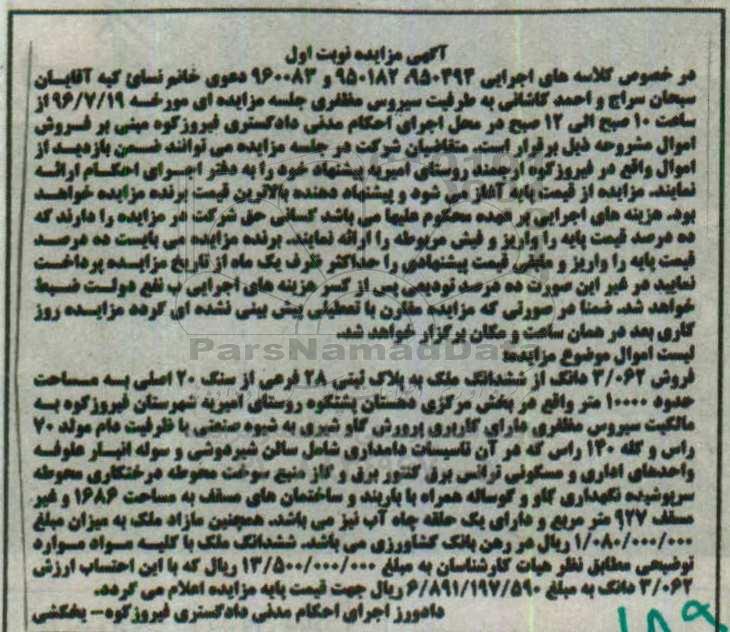 آگهی مزایده نوبت اول
در خصوص کلاسه های اجرایی ۹۵۰۴۹۴، ۹۵۰۱۸۲ و ۹۶۰۰۸۳ دعوی خانم نسائ کیه آقایان
سبحان سراج و احمد کاشانی به طرفیت سیروس مظفری جلسه مزایده ای مورخه ۹۶/۷/۱۹ از
ساعت ۱۰ صبح الی ۱۲ صبح در محل اجرای احکام مدنی دادگستری فیروزکوه مبنی بر فروش
اموال مشروحه ذیل برقرار است. متقاضیان شرکت در جلسه مزایده می توانند ضمن بازدید از
اموال واقع در فیروزکوه ارجمند روستای امیریه پیشنهاد خود را به دفتر اجرای احکام ارائه
نمایند. مزایده از قیمت پایه آغاز می شود و پیشنهاد دهنده بالاترین قیمت برنده مزایده خواهد
بود. هزینه های اجرایی بر عهده محکوم علیها می باشد کسانی حق شرکت در مزایده را دارند که
ده درصد قیمت پایه را واریز و فیش مربوطه را ارائه نمایند. برنده مزایده می بایست ده درصد
قیمت پایه را واریز و مابقی قیمت پیشنهادی را حداکثر ظرف یک ماه از تاریخ مزایده پرداخت
نمایید در غیر این صورت ده درصد تودیعی پس از کسر هزینه های اجرایی ب نفع دولت ضبط
خواهد شد. ضمنا در صورتی که مزایده مقارن با تعطیلی پیش بینی نشده ای گردد مزایده روز
کاری بعد در همان ساعت و مکان برگزار خواهد شد.
ParsNamadData
لیست اموال موضوع مزایده:
فروش ۳/۰۶۲ دانگ از ششدانگ ملک به پلاک ثبتی ۲۸ فرعی از سنگ ۲۰ اصلی به مساحت
حدود ۱۰۰۰۰ متر واقع در بخش مرکزی دهستان پشتکوه روستای امیریه شهرستان فیروزکوه به
مالکیت سیروس مظفری دارای کاربری پرورش گاو شیری به شیوه صنعتی با ظرفیت دام مولد ۷۰
راس و گله ۱۴۰ راس که در آن تاسیسات دامداری شامل سالن شیردوشی و سوله انبار علوفه
واحدهای اداری و مسکونی ترانس برق کنتور برق و گاز منبع سوخت محوطه درختکاری محوطه
سرپوشیده نگهداری گاو و گوساله همراه با باربند و ساختمان های مسقف به مساحت ۱۶۸۶ و غیر
مسقف ۹۲۷ متر مربع و دارای یک حلقه چاه آب نیز می باشد. همچنین مازاد ملک به میزان مبلغ
۱/۰۸۰/۰۰۰/۰۰۰ ریال در رهن بانک کشاورزی می باشد. ششدانگ ملک با کلیه مواد موارد
توضیحی مطابق نظر هیات کارشناسان به مبلغ ۱۳/۵۰۰/۰۰۰/۰۰۰ ریال که با این احتساب ارزش
۳/۰۶۲ دانگ به مبلغ ۶/۸۹۱/۱۹۷/۵۹۰ ریال جهت قیمت پایه مزایده اعلام می گردد.
دادورز اجرای احکام مدنی دادگستری فیروزکوه– یخکشی